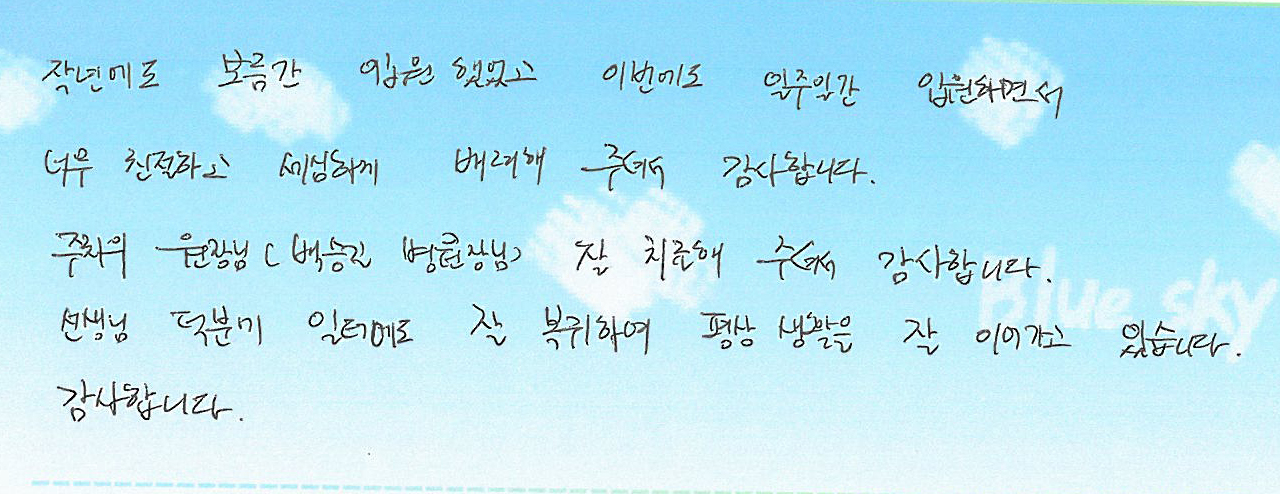 작년에도 보름간 입원 했었고 이번에도 일주일간 입원하면서
너무 친절하고 세심하게 배려해 주셔서 감사합니다.
주치의 원장님(백승길 병원장님) 잘 치료해 주셔서 감사합니다.
선생님 덕분에 일터에도 잘 복귀하여 평상 생활을 잘 이어가고 있습니다.
감사합니다.
Blue sky